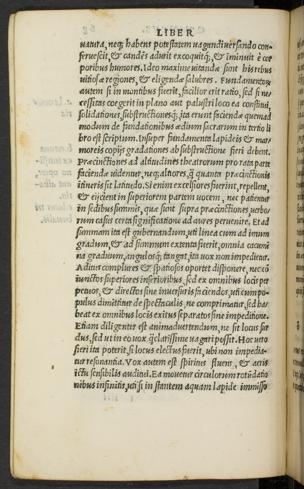 LIBER
uatura, neq; habens potestatem uagandi uersando con-
feruescit, & candēs adurit excoquitq́;, & iminuit è cor
poribus humores. Ideo maxime uitandæ sunt his rebus
uitiosæ regiones, & eligendæ salubres. Fundamentorū
autem si in montibus fuerit, facilior erit ratio, sed si ne-
cessitas coegerit in plano aut palustri loco ea constitui,
solidationes, substructionesq́;, ita erunt faciendæ quemad
modum de fundationibus ædium sacrarum in tertio li
bro est scriptum. Insuper fundamenta lapideis & mar
moreis copijs gradationes ab substructione fieri debent.
Præcinctiones ad altitudines theatrorum pro rata parte
faciendæ uidentur, neq; altiores, q̄ quanta præcinctionis
itineris sit latitudo. Si enim excelsiores fuerint, repellent,
& eijcient in superiorem partem uocem, nec patientur
in sedibus summis, quæ sunt supra præcinctiones uerbo-
rum casus certa significatione ad aures peruenire. Et ad
summam ita est gubernandum, uti linea cum ad imum
gradum, & ad summum extenta fuerit, omnia cacumi
na graduum, angulosq́; tangat, ita uox non impedietur.
Aditus complures & spatiosos oportet disponere, nec cō
iunctos superiores inferioribus, sed ex omnibus locis per
petuos, & directos sine inuersuris faciendos, uti cum po-
pulus dimittitur de spectaculis, ne comprimatur, sed ha-
beat ex omnibus locis exitus separatos sine impeditione.
Etiam diligenter est animaduertendum, ne sit locus sur
dus, sed ut in eo uox q̄ clarissime uagari possit. Hoc uero
fieri ita poterit, si locus electus fuerit, ubi non impedia-
tur resonantia. Vox autem est spiritus fluens, & aeris
ictu sensibilis auditui. Ea mouetur circulorum rotūdatio
nibus infinitis, uti si in stantem aquam lapide immisso